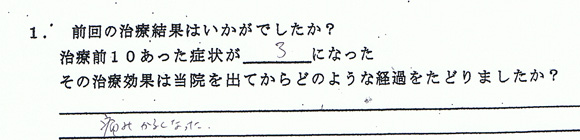 1. 前回の治療結果はいかがでしたか？
治療前10あった症状が 3 になった
その治療効果は当院を出てからどのような経過をたどりましたか？
痛みかるくなった.